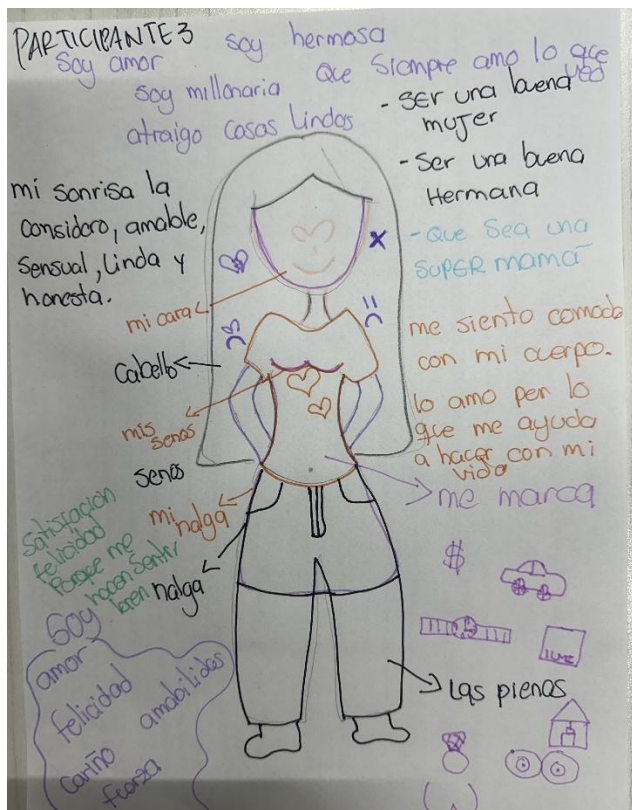 PARTICIPANTE 3
soy hermosa
Soy amor
que siempre amo lo que
veo
soy millonaria
atraigo cosas lindas
- SER una buena
mujer
- Ser una buena
Hermana
- Que Sea una
SUPER mamá
mi sonrisa la
considoro, amable,
sensual, linda y
honesta.
mi cara
Cabello
mis
senos
senos
mi nalga
nalga
me siento comodo
con mi cuerpo.
lo amo por lo
que me ayuda
a hacer con mi
vida
me marca
Satisfación
felicidad
Porque me
hacen sentir
bien
Soy
amor
felicidad
amabilidas
cariño
fuerza
$
Las piernas